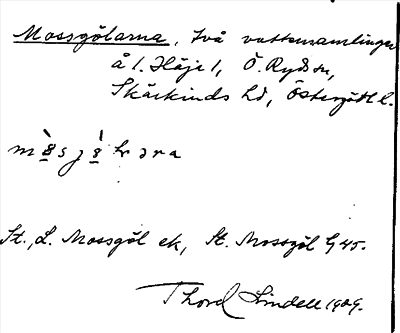 Mossgölarna, två vattensamlingar
å l. Höje 1, Ö. Ryds sn,
Skärkinds hd, Östergötl l.
St., L. Mossgöl ek, St. Mossgöl G 45.
Thord Lindell 1929.